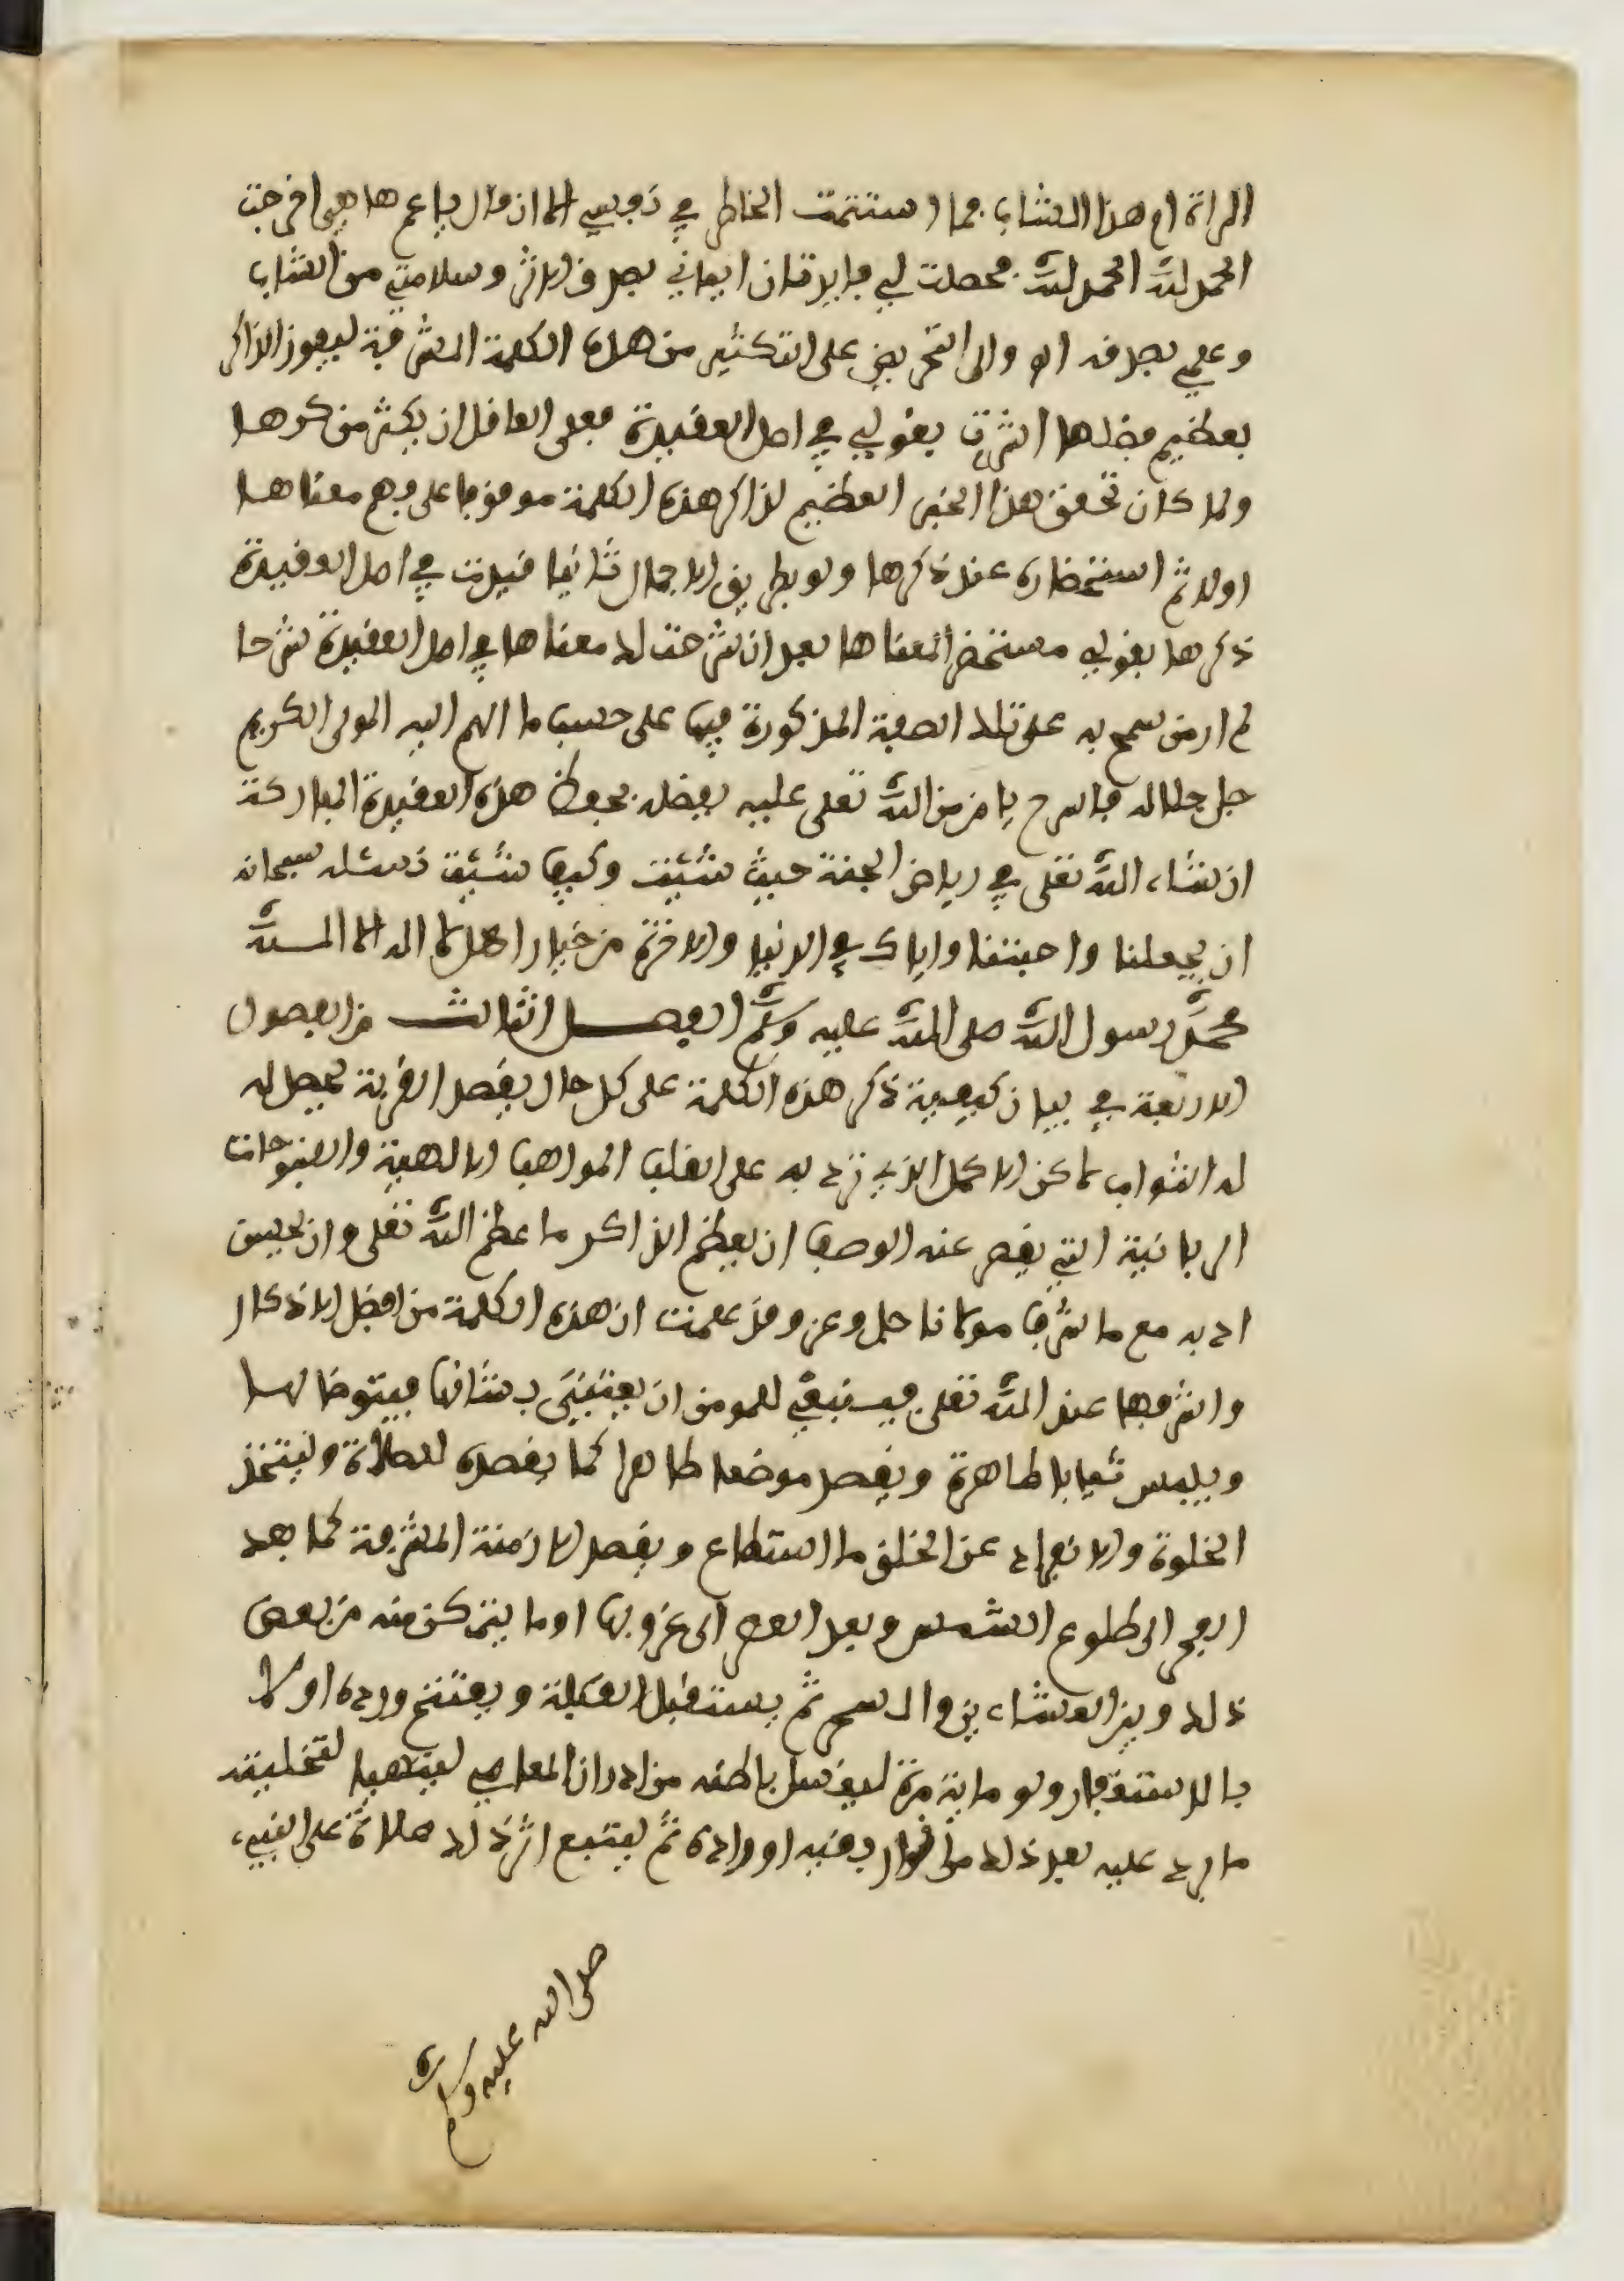 المراة ام هذا الشاب فما استتمت الخاطر في نفسي الا ان قال يا عم ها هي اخرجت
الحمد لله الحمد لله فحصلت لي فايدتان ايماني بصدق الاثر وسلامتي من الشاب
وعلمي بصدقه اه والى التحريض على التكثير من هذه الكلمة المشرفة ليفوز الذاكر
بعظيم فضلها اشرت بقولي في اصل العقيدة فعلى العاقل ان يكثر من ذكرها
ولما كان تحقق هذا الخير العظيم لذاكر هذه الكلمة موقوفا على فهم معناها
اولا ثم استحضاره عند ذكرها ولو بطريق الاجمال ثانيا قيدت في اصل العقيدة
ذكرها بقولي مستحضرا لمعناها بعد ان شرحت لك معناها في اصل العقيدة شرحا
لم ار من سمح به على تلك الصفة المذكورة فيها على حسب ما الهم اليه المولى الكريم
جل جلاله فاسرح يا من من الله تعلى عليه بفضله بحفظ هذه العقيدة المباركة
ان شاء الله تعلى في رياض الجنة حيث شئت وكيف شئت نسئله سبحانه
ان يجعلنا واحبتنا واياك في الدنيا والاخرة من خيار اهل لا اله الا الله
محمد رسول الله صلى الله عليه وسلم الفصل الثالث من الفصول
الاربعة في بيان كيفية ذكر هذه الكلمة على كل حال يقصد القربة يحصل له
له الثواب لاكن الاكمل الذي ترد به على القلب المواهب الالهية والفتوحات
الربانية التي يقصر عنه الوصف ان يعظم الذاكر ما عظم الله تعلى وان يحسن
ادبه مع ما شرف مولانا جل وعز وقد علمت ان هذه الكلمة من افضل الاذكار
واشرفها عند الله تعلى فينبغي للمومن ان يعتني بشانها فيتوضا لها
ويلبس ثيابا طاهرة ويقصد موضعا طاهرا كما يقصده للصلاة وليتخذ
الخلوة والانفراد عن الخلق ما استطاع ويقصد الازمنة المشرفة كما بعد
الفجر الى طلوع الشمس وبعد العصر الى غروبها او ما يتمكن منه من بعض
ذلك وبين العشاءين والسحر ثم يستقبل القبلة ويفتتح ورده اولا
بالاستغفار ولو ماية مرة ليغسل باطنه من ادران المعاصي ليتهيا لتحليته
ما يرد عليه بعد ذلك من انوار بقية اوراده ثم يتبع اثر ذلك صلاة على النبيء
صلى الله عليه وسلم